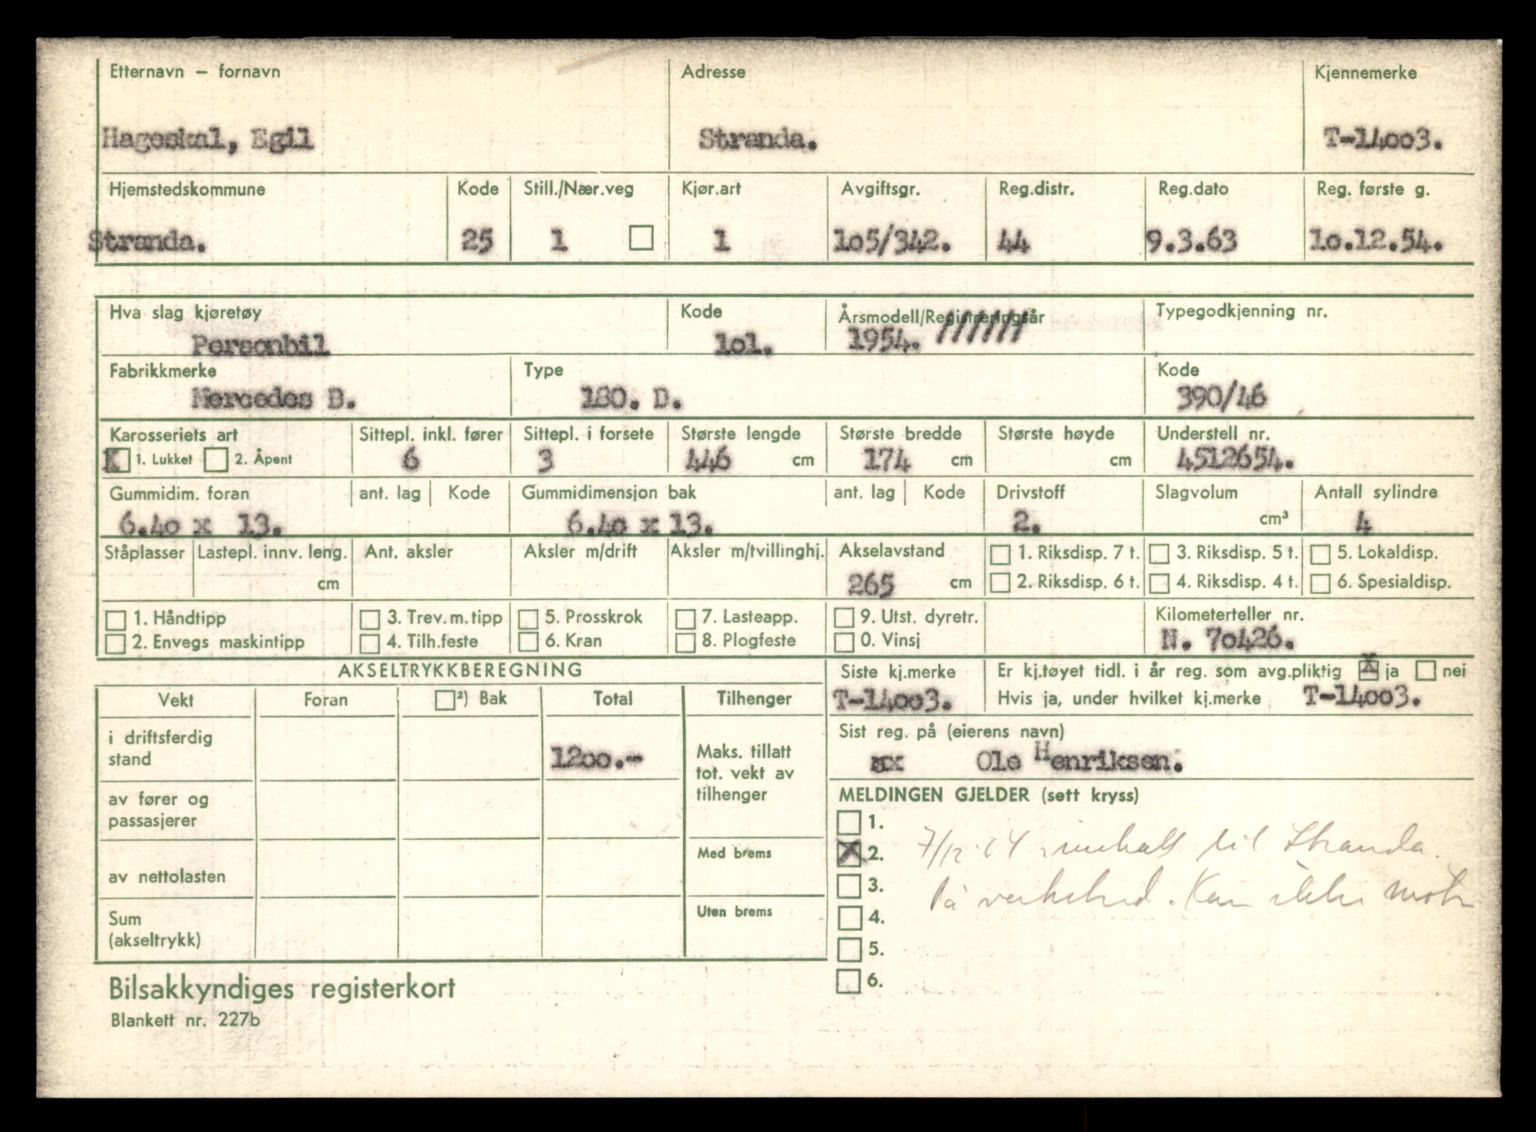 Etternavn – fornavn Adresse Kjennemerke
Hageskal, Egil Stranda. T-14003.
Hjemstedskommune Kode Still./Nær.veg Kjør.art Avgiftsgr. Reg.distr. Reg.dato Reg. første g.
Stranda. 25 1 1 1o5/342. 44 9.3.63 1o.12.54.
Hva slag kjøretøy Kode Årsmodell/Registreringsår Typegodkjenning nr.
Personbil 1o1. 1954. //////
Fabrikkmerke Type Kode
Mercedes B. 180. D. 390/46
Karosseriets art Sittepl. inkl. fører Sittepl. i forsete Største lengde Største bredde Største høyde Understell nr.
X 1. Lukket 2. Åpent 6 3 446 cm 174 cm cm 4512654.
Gummidim. foran ant. lag Kode Gummidimensjon bak ant. lag Kode Drivstoff Slagvolum Antall sylindre
6.4o x 13. 6.4o x 13. 2. cm³ 4
Ståplasser Lastepl. innv. leng. Ant. aksler Aksler m/drift Aksler m/tvillinghj. Akselavstand 1. Riksdisp. 7 t. 3. Riksdisp. 5 t. 5. Lokaldisp.
cm 265 cm 2. Riksdisp. 6 t. 4. Riksdisp. 4 t. 6. Spesialdisp.
1. Håndtipp 3. Trev. m. tipp 5. Prosskrok 7. Lasteapp. 9. Utst. dyretr. Kilometerteller nr.
2. Envegs maskintipp 4. Tilh.feste 6. Kran 8. Plogfeste 0. Vinsj N. 7o426.
AKSELTRYKKBEREGNING Siste kj.merke Er kj.tøyet tidl. i år reg. som avg.pliktig X ja nei
T-14oo3. Hvis ja, under hvilket kj.merke T-14oo3.
Vekt Foran ²) Bak Total Tilhenger
Sist reg. på (eierens navn)
i driftsferdig stand 1200.- Maks. tillatt tot. vekt av tilhenger
Ole Henriksen.
MELDINGEN GJELDER (sett kryss)
av fører og passasjerer
1.
X 2. 7/12-64 til Stranda.
Med brems
av nettolasten
3. På verksted. Kan ikke
Sum (akseltrykk) Uten brems
4.
5.
6.
Bilsakkyndiges registerkort
Blankett nr. 227b